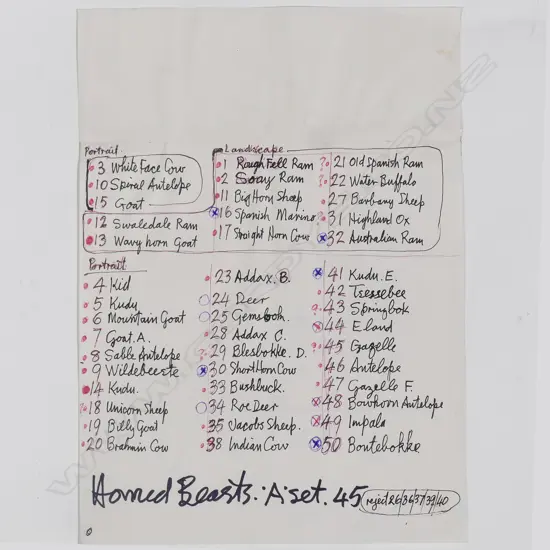 Portrait
3 White Face Cow
10 Spiral Antelope
15 Goat
12 Swaledale Ram
13 Wavy horn Goat
Landscape
1 Rough Fell Ram
2 Soay Ram
11 Big Horn Sheep
16 Spanish Marino
17 Straight Horn Cow
21 Old Spanish Ram
22 Water Buffalo
27 Barbary Sheep
31 Highland Ox
32 Australian Ram
Portrait
4 Kid
5 Kudu
6 Mountain Goat
7 Goat. A.
8 Sable Antelope
9 Wildebeeste
14 Kudu.
18 Unicorn Sheep
19 Billy Goat
20 Brahmin Cow
23 Addax. B.
24 Deer
25 Gemsbok.
28 Addax C.
29 Blesbokke. D.
30 Short Horn Cow
33 Bushbuck.
34 Roe Deer
35 Jacobs Sheep.
38 Indian Cow
41 Kudu. E.
42 Tsessebee
43 Springbok
44 Eland
45 Gazelle
46 Antelope
47 Gazelle F.
48 Antelope
49 Impala
50 Bontebokke
Horned Beasts: 'A' set. 45
reject 26/36/37/39/40